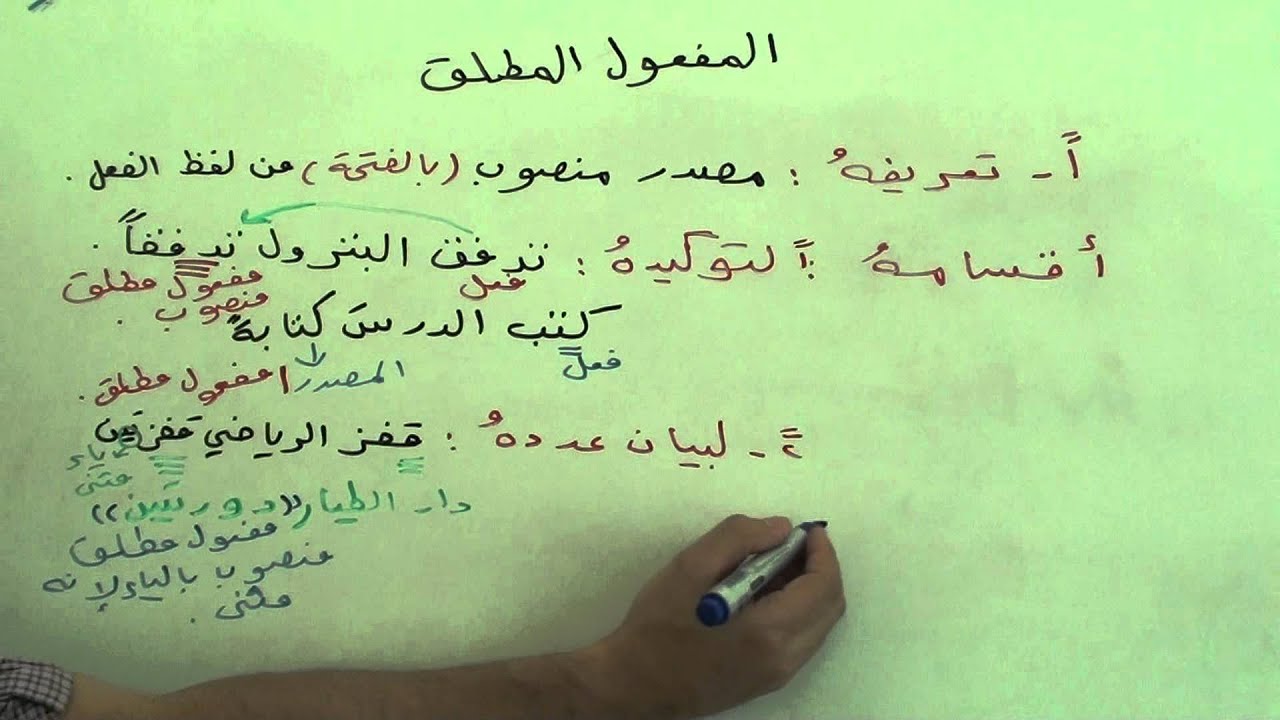 المفعول المطلق
أً- تعريفهُ : مصدر منصوب (بالفتحة) من لفظ الفعل .
أقسامهُ : اً لتوكيدهُ : تدفق البترول تدفقاً .
فعل مفعول مطلق
منصوب .
كتب الدرسَ كتابةً
فعل المصدر | مفعول مطلق .
٢ً- لبيان عددهُ : قفز الرياضي قفزتين
ياء
مثنى
دار الطيار «دورتين»
مفعول مطلق
منصوب بالياء لإنه
مثنى .